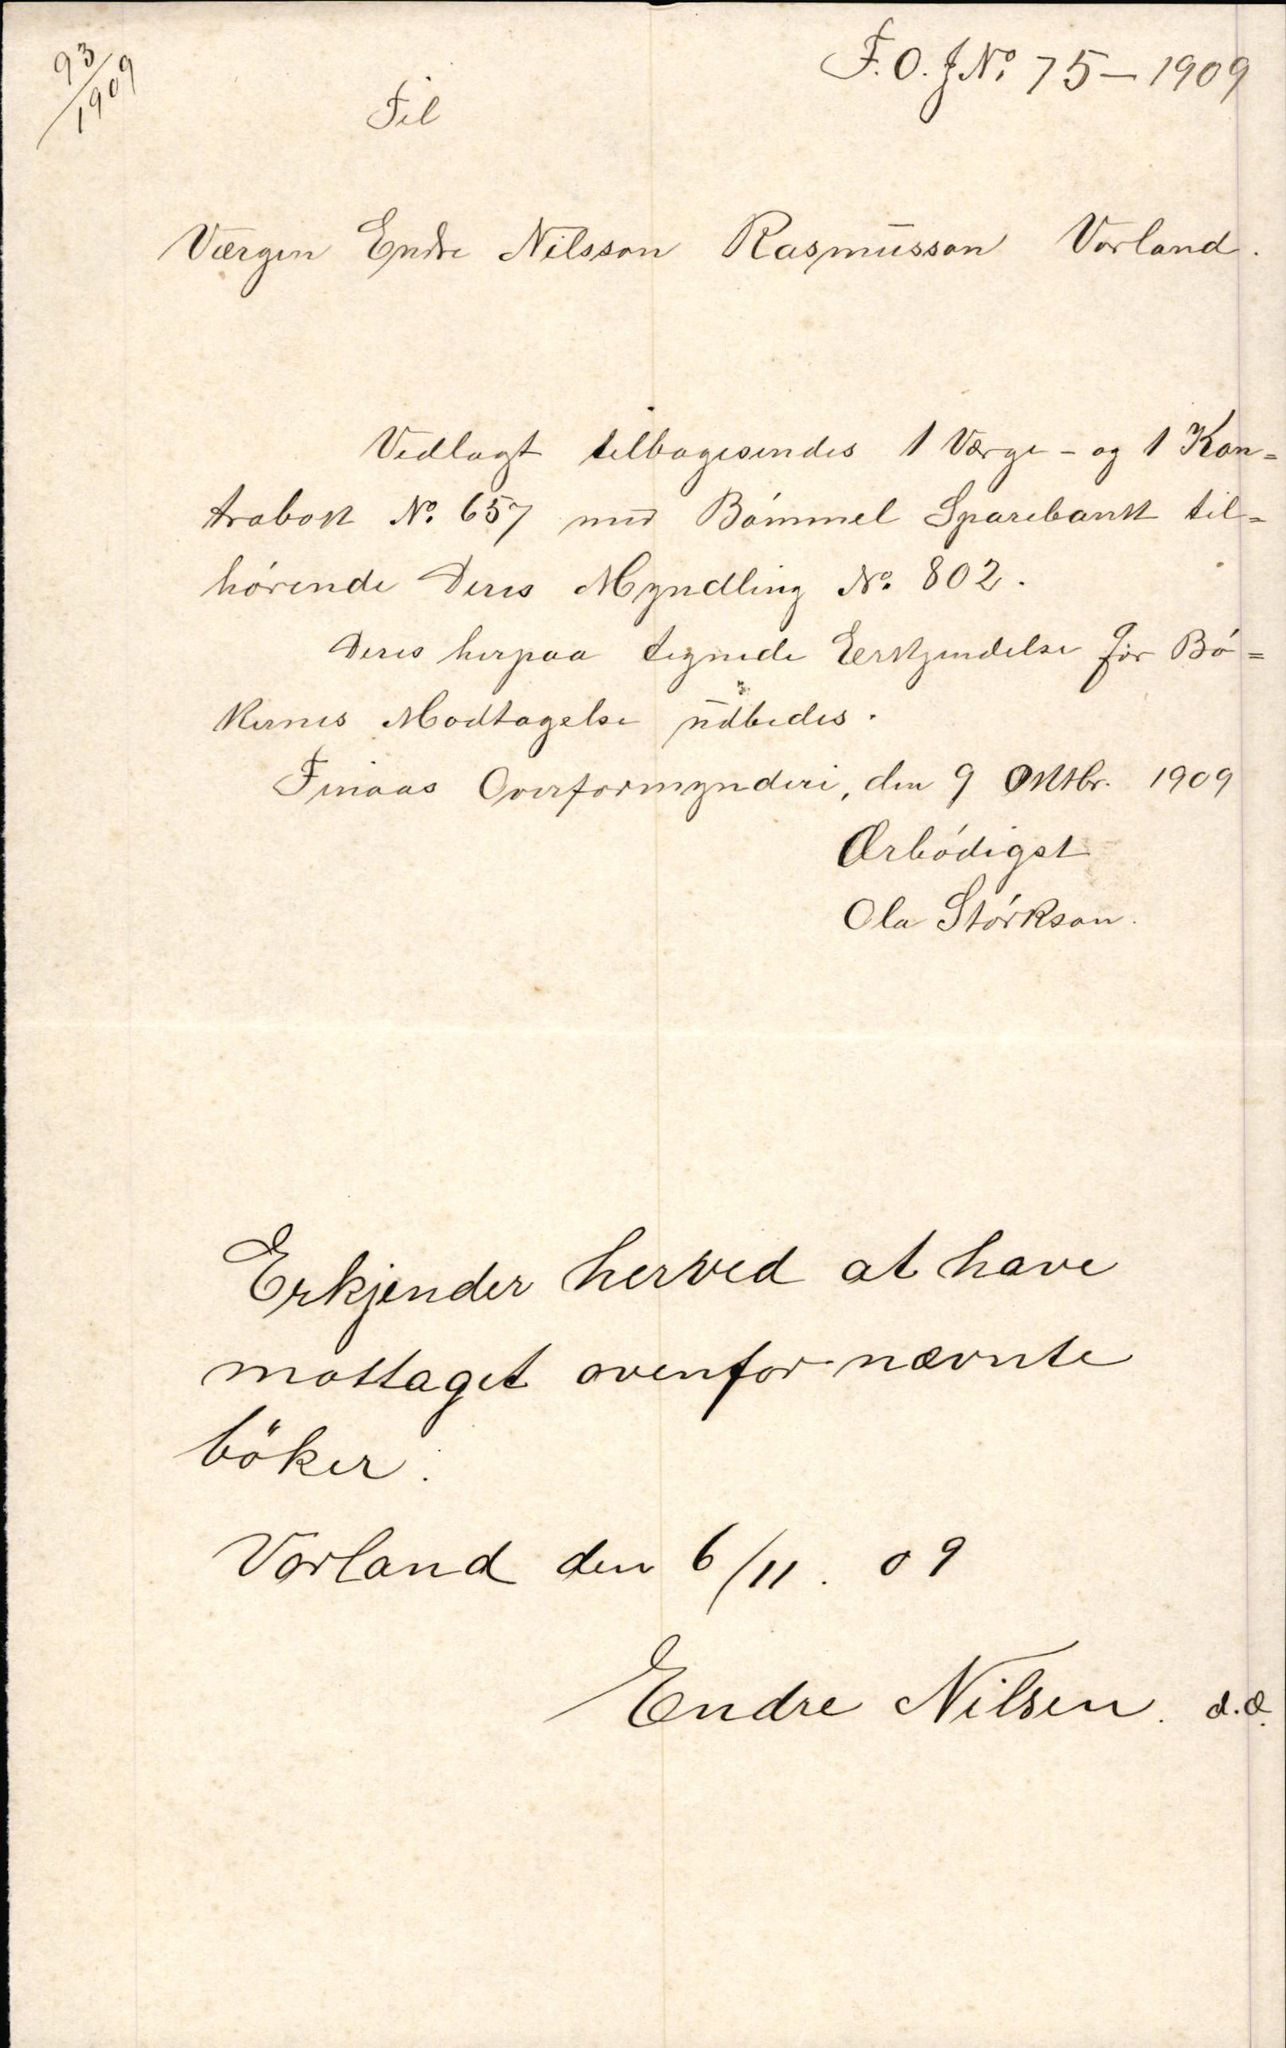 93/1909
F.O.J No. 75 - 1909
Til
Værgen Endre Nilsson Rasmusson Vorland.
Vedlagt tilbagesendes 1 Værge- og 1 Kon-
trabok No. 657 med Bømmel Sparebank til-
hørende Deres Myndling No. 802.
Deres herpaa tegnede Erkjendelse for Bø-
kernes Modtagelse udbedes.
Finaas Overformynderi, den 9 Oktbr. 1909
Ærbødigst
Ola Størkson.
Erkjender herved at have
mottaget ovenfor nævnte
böker.
Vorland den 6/11. 09
Endre Nilsen. d.æ.